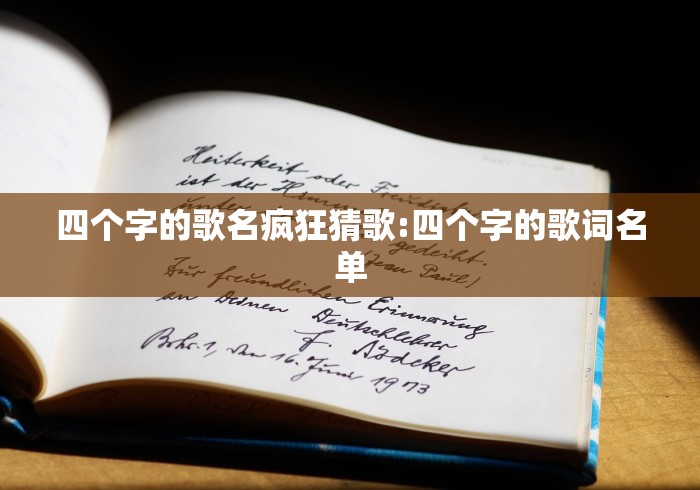 Heiterkeit oder Freudigkeit
ist der Himmel
四个字的歌名疯狂猜歌:四个字的歌词名
单
gedeiht.
(Jean Paul)
Zur freundlichen Erinnerung
an Deinen Deutschlehrer
F.
Bohr. 1, den 16. Juni 1973